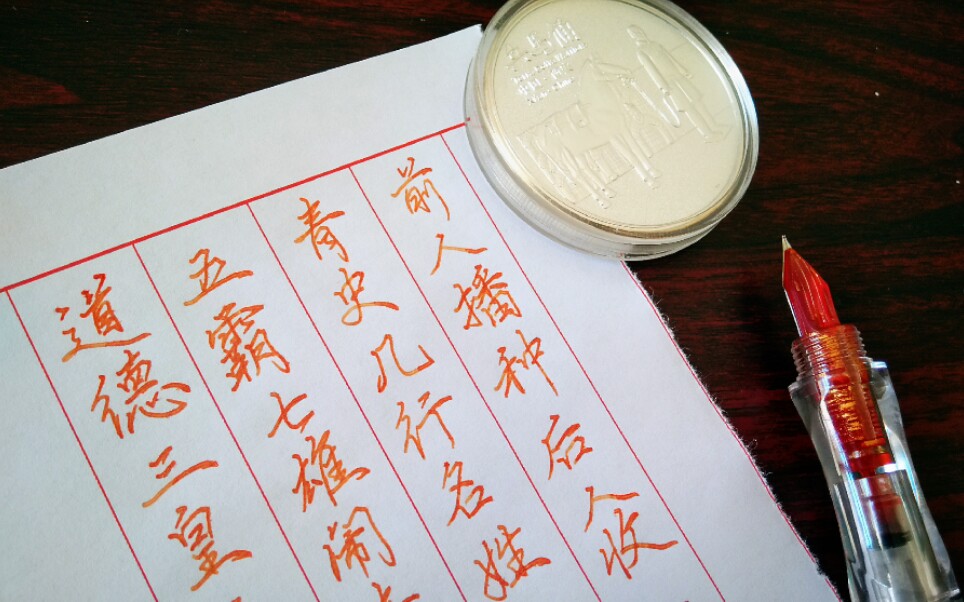 道德三皇
五霸七雄闹
青史几行名姓
前人播种后人收